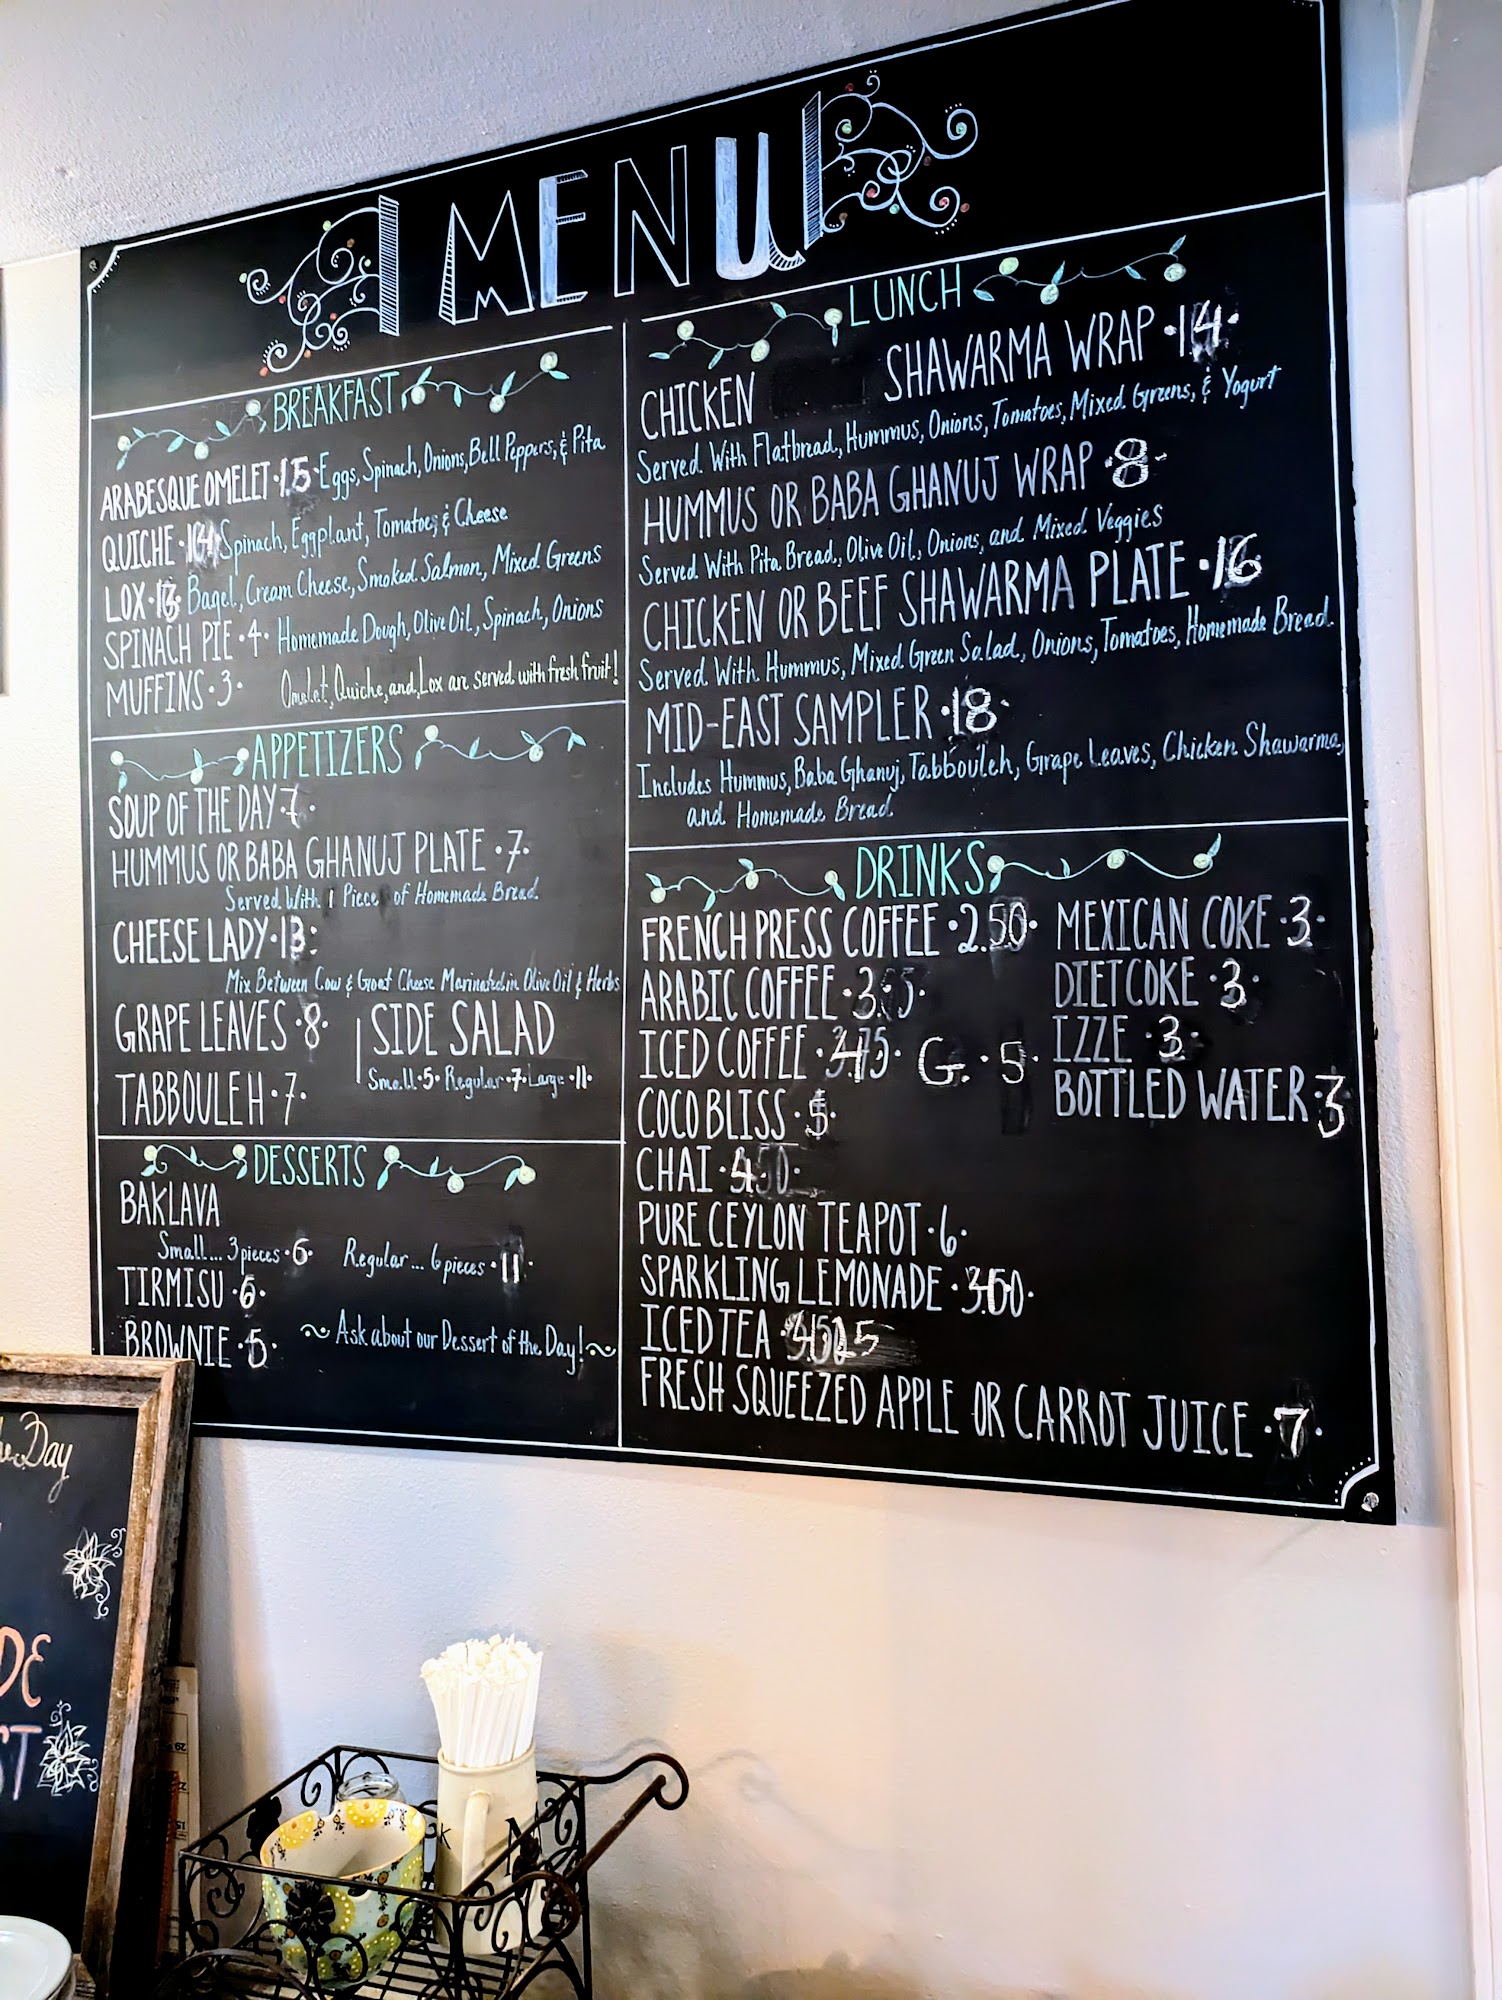 MENU
BREAKFAST
ARABESQUE OMELET · 15 · Eggs, Spinach, Onions, Bell Peppers, & Pita
QUICHE · 14 · Spinach, Eggplant, Tomatoes & Cheese
LOX · 13 · Bagel, Cream Cheese, Smoked Salmon, Mixed Greens
SPINACH PIE · 4 · Homemade Dough, Olive Oil, Spinach, Onions
MUFFINS · 3 ·
Omelet, Quiche, and Lox are served with fresh fruit!
APPETIZERS
SOUP OF THE DAY · 7 ·
HUMMUS OR BABA GHANUJ PLATE · 7 ·
Served With 1 Piece of Homemade Bread.
CHEESE LADY · 13 ·
Mix Between Cow & Goat Cheese Marinated in Olive Oil & Herbs
GRAPE LEAVES · 8 ·
TABBOULEH · 7 ·
SIDE SALAD
Small · 5 · Regular · 7 · Large · 11 ·
DESSERTS
BAKLAVA
Small... 3 pieces · 6 · Regular... 6 pieces · 11 ·
TIRMISU · 6 ·
BROWNIE · 5 ·
~ Ask about our Dessert of the Day! ~
LUNCH
CHICKEN SHAWARMA WRAP · 14 ·
Served With Flatbread, Hummus, Onions, Tomatoes, Mixed Greens, & Yogurt
HUMMUS OR BABA GHANUJ WRAP · 8 ·
Served With Pita Bread, Olive Oil, Onions, and Mixed Veggies
CHICKEN OR BEEF SHAWARMA PLATE · 16
Served With Hummus, Mixed Green Salad, Onions, Tomatoes, Homemade Bread.
MID-EAST SAMPLER · 18 ·
Includes Hummus, Baba Ghanuj, Tabbouleh, Grape Leaves, Chicken Shawarma,
and Homemade Bread.
DRINKS
FRENCH PRESS COFFEE · 2.50 ·
ARABIC COFFEE ·
ICED COFFEE · G. · 5 ·
COCO BLISS · 5 ·
CHAI ·
PURE CEYLON TEAPOT · 6 ·
SPARKLING LEMONADE ·
ICED TEA ·
FRESH SQUEEZED APPLE OR CARROT JUICE · 7 ·
MEXICAN COKE · 3 ·
DIET COKE · 3 ·
IZZE · 3 ·
BOTTLED WATER · 3
Day